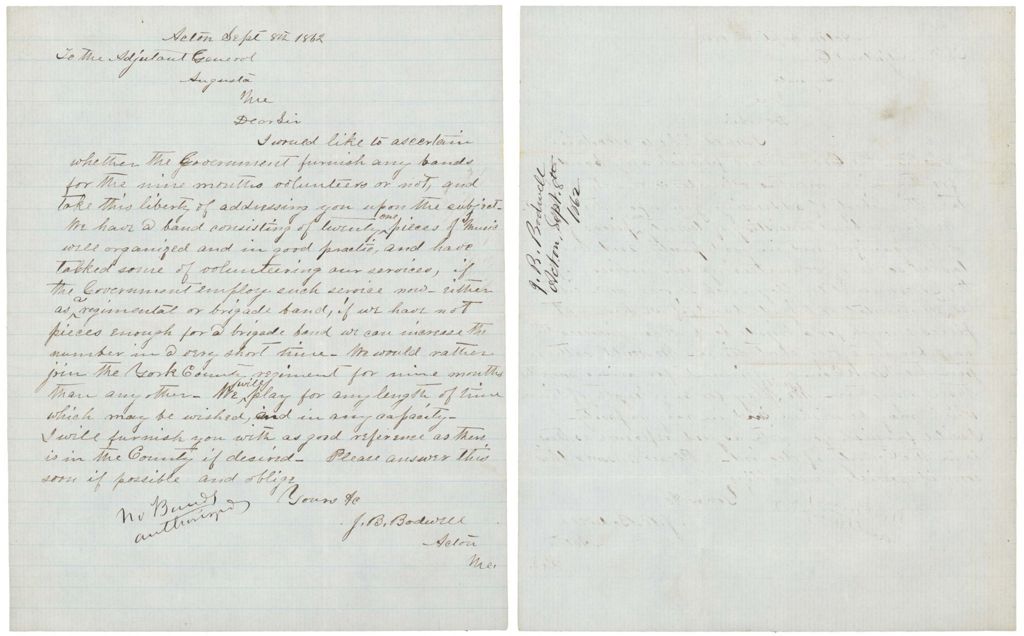 Acton Sept 8th 1862
To the Adjutant General
Augusta
Me
Dear Sir
I would like to ascertain
whether the Government furnish any bands
for the nine months volunteers or not, and
take this liberty of addressing you upon the subject.
We have a band consisting of twenty one pieces of Music
well organized and in good practic, and have
talked some of volunteering our services, if
the Government employ such service now - either
as a regimental or brigade band, if we have not
pieces enough for a brigade band we can increase the
number in a very short time - We would rather
join the York County regiment for nine months
than any other - We will play for any length of time
which may be wished, and in any capacity -
I will furnish you with as good reference as there
is in the County if desired - Please answer this
soon if possible and oblige
Yours &c
J. B. Bodwell
Acton
Me.
No Bands
authorized
J. B. Bodwell
Acton, Sept. 8th,
1862